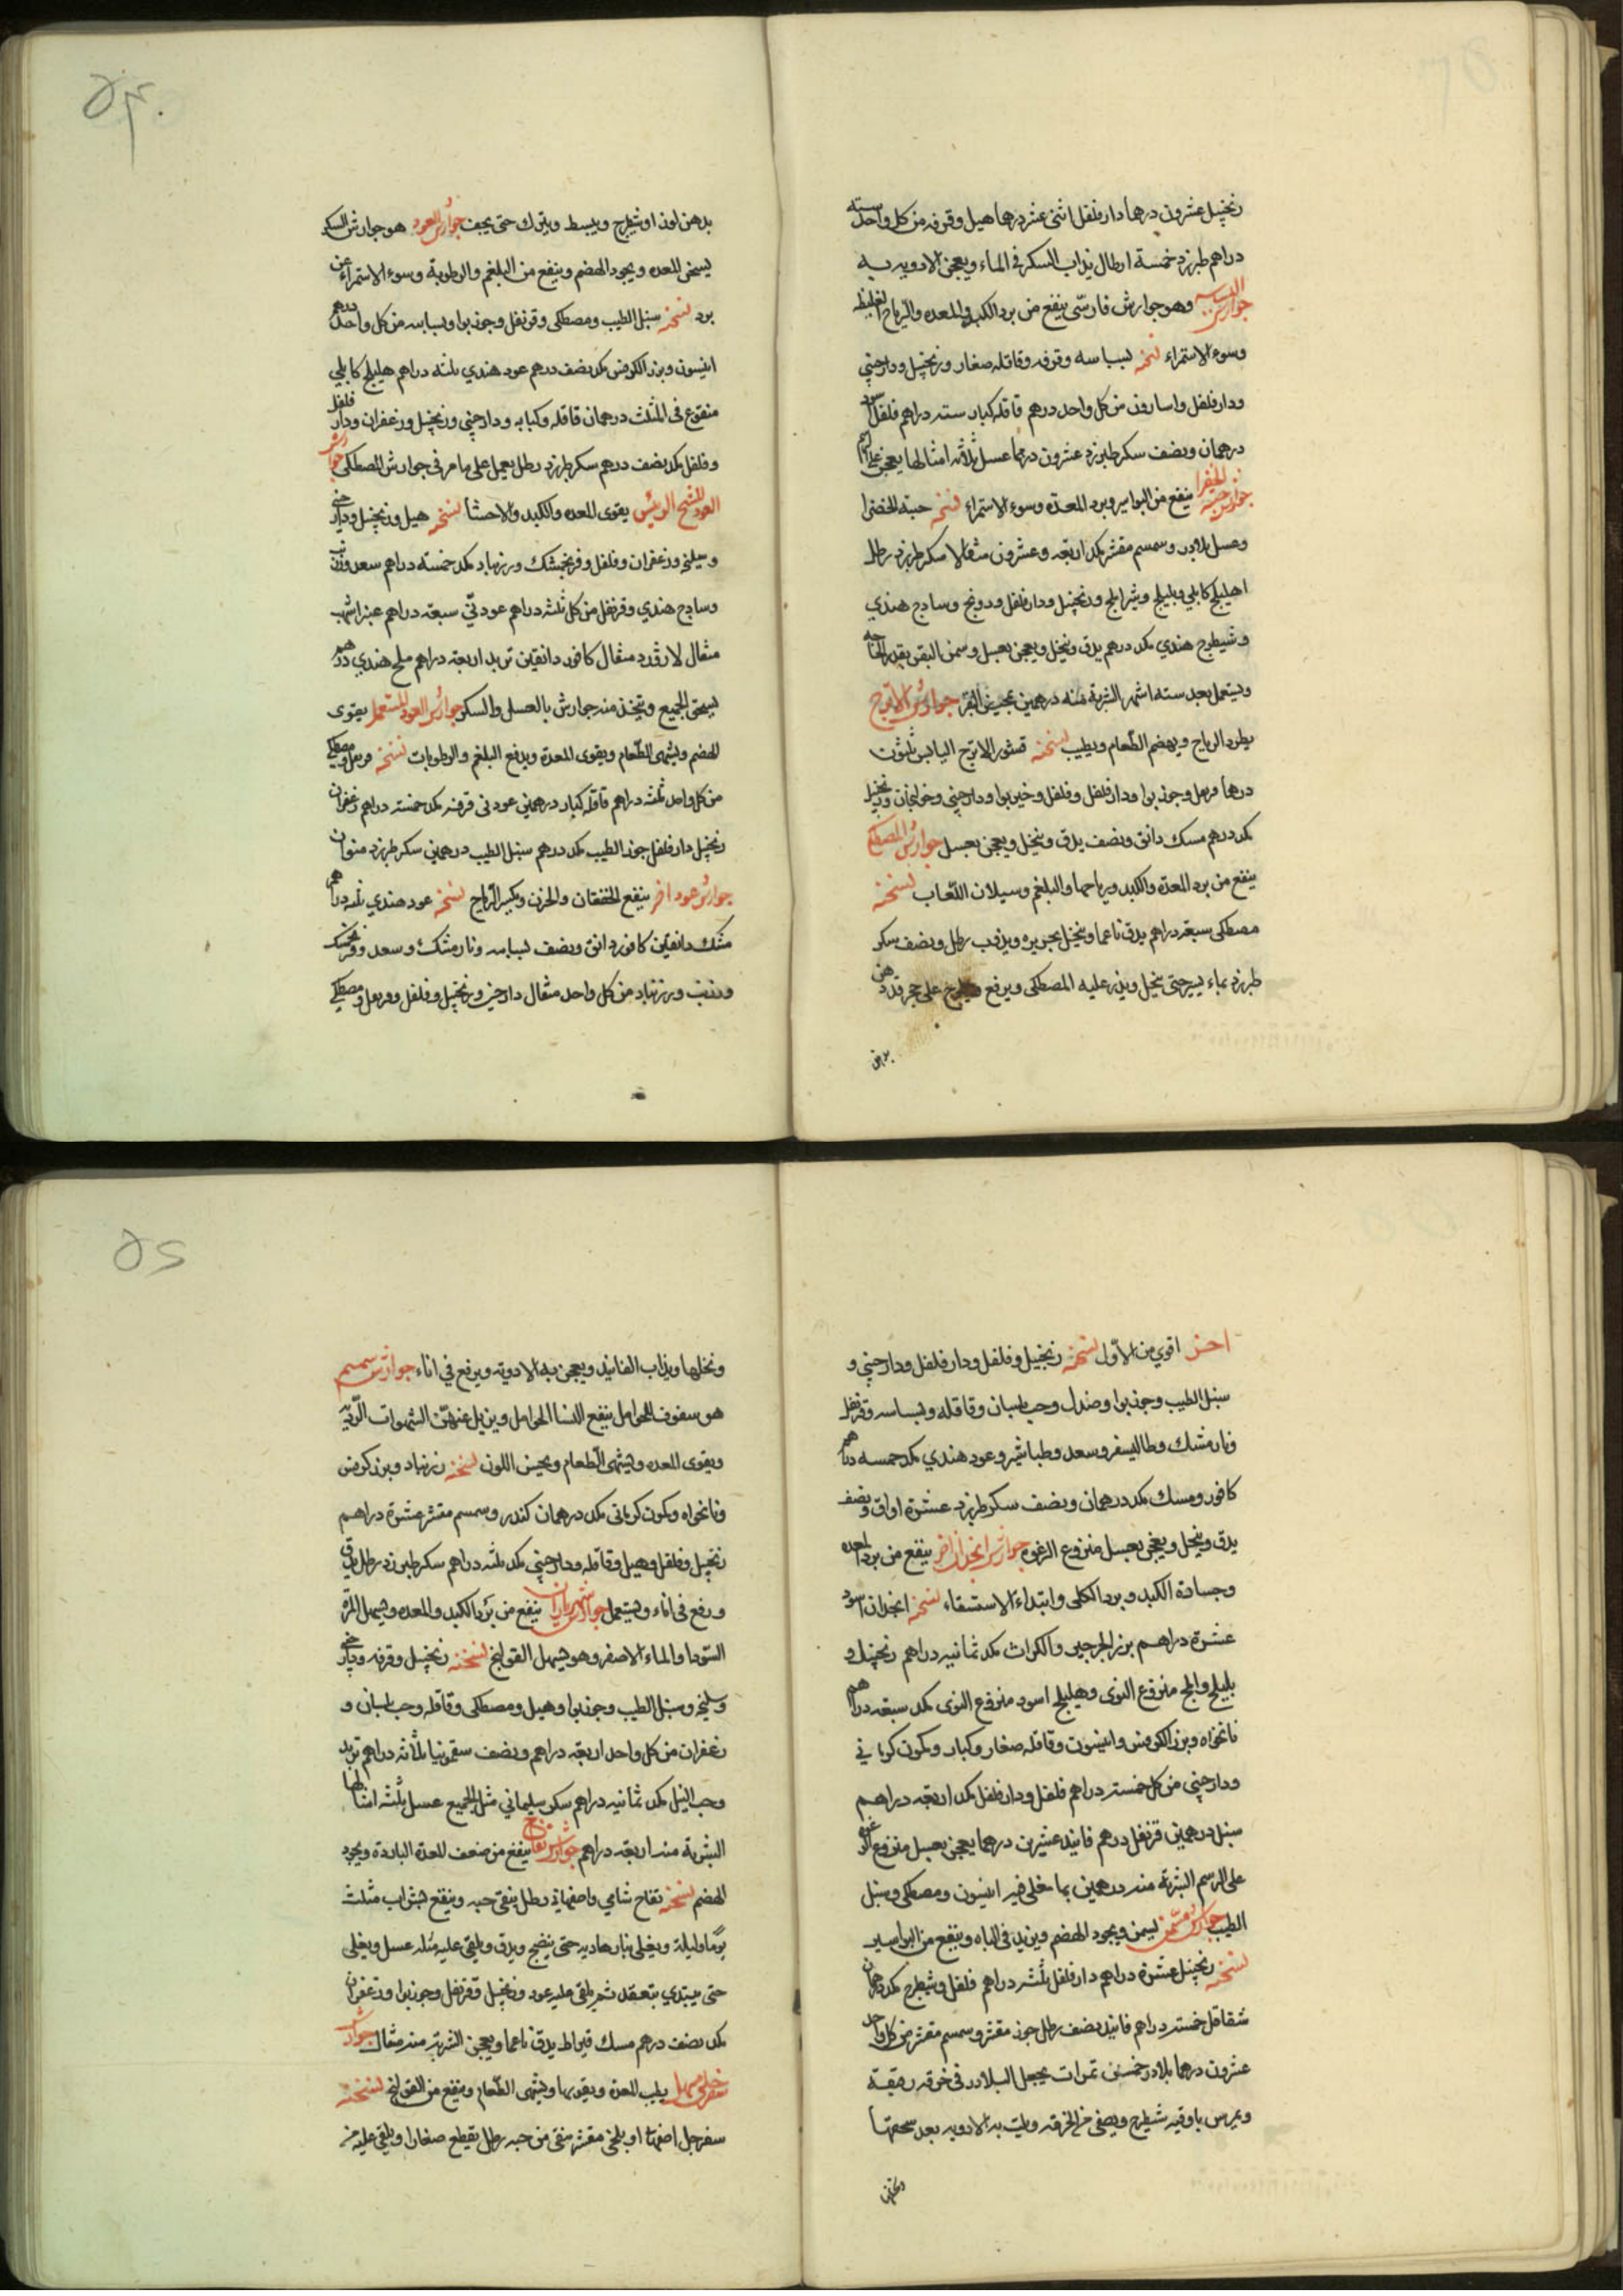 زنجبيل عشرون درهما دار فلفل اثنى عشر درهما هيل وقرفه من كل واحد سته
دراهم طبرزد خمسة ارطال يذاب السكر في الماء ويعجن الادويه به
جوارش البسباسه وهو جوارش فارسى ينفع من برد الكبد والمعده والرياح الغليظه
وسوء الاستمراء نسخته بسباسه وقرفه وقاقله صغار وزنجبيل ودارچيني
ودار فلفل واسارون من كل واحد درهم قاقله كبار سته دراهم فلفل اسود
درهمان ونصف سكر طبرزد عشرون درهما عسل ثلاثه امثالها يعجن
جوارش حبة الخضرا ينفع من البواسير وبرد المعدة وسوء الاستمراء نسخته حبة الخضرا
وعسل بلادر وسمسم مقشر مكد اربعه وعشرون مثقالا سكر طبرزد رطل
اهليلج كابلي وبليلج وشير املج وزنجبيل ودار فلفل ودورنج وسادج هندي
وشيطرج هندي مكد درهم يدق وينخل ويعجن بعسل وسمن البقر بقدر الحاجه
ويستعمل بعد سته اشهر الشربة منه درهمين جوارش الاترج
يطرد الرياح ويهضم الطعام ويطيب نسخته قشور الاترج اليابس ثلثون
درهما قرنفل وجوزبوا ودار فلفل وفلفل وخيربوا ودارچيني وخولنجان وزنجبيل
مكد درهم مسك دانق ونصف يدق وينخل ويعجن بعسل جوارش المصطكي
ينفع من برد المعدة والكبد ورياحها والبلغم وسيلان اللعاب نسخته
مصطكى سبعة دراهم يدق ناعما وينخل بحريره ويذوب رطل ونصف سكر
طبرزد بماء يسير حتى ينحل ويذر عليه المصطكى ويرفع ويطرح على حجر قد دهن
بدهن
۵۴
بدهن لوز او شيرج ويبسط ويترك حتى يجف جوارش العود هو جوارش السكر
يسخن المعده ويجود الهضم وينفع من البلغم والرطوبة وسوء الاستمراء عن
برد نسخته سنبل الطيب ومصطكى وقرنفل وجوزبوا وبسباسه من كل واحد درهم
انيسون وبزر الكرفس مكد نصف درهم عود هندي ثلثه دراهم هليلج كابلي
منقوع في المثلث درهمان قاقله وكبابه ودارچيني وزنجبيل وزعفران ودار فلفل
وفلفل مكد نصف درهم سكر طبرزد رطل يعمل على ما مر في جوارش المصطكى جوارش
العود للشيخ الرئيس يقوى المعده والكبد والاحشا نسخته هيل وزنجبيل ودارچيني
وسليخه وزعفران وفلفل وفرنجمشك وزرنباد مكد خمسته دراهم سعد وزرنب
وسادج هندي وقرنفل من كل ثلثه دراهم عود نّي سبعة دراهم عنبر اشهب
مثقال لازورد مثقال كافور دانقين تربد اربعة دراهم ملح هندي درهم
يسحق الجميع ويتخذ منه جوارش بالعسل والسكر جوارش العود المستعمل يقوى
الهضم ويشهى الطعام ويقوى المعدة ويدفع البلغم والرطوبات نسخته قرنفل ومصطكي
من كل واحد ثلثه دراهم قاقله كبار درهمين عود ني قرفه مكد خمسته دراهم زعفران
زنجبيل دار فلفل جوز الطيب مكد درهم سنبل الطيب درهمين سكر طبرزد منوان
جوارش عود اخر ينفع الخفقان والحزن ويكسر الرياح نسخته عود هندي ثلثه دراهم
مشك دانقين كافور دانق ونصف بسباسه ونارمشك وسعد وفرنجمشك
وزرنب وزرنباد من كل واحد مثقال دارچيني وزنجبيل وفلفل وقرنفل ومصطكي
اخر اقوى من الاول نسخته زنجبيل وفلفل ودار فلفل ودارچيني و
سنبل الطيب وجوزبوا وصندل وحب بلسان وقاقله وبسباسه وقرنفل
ونارمشك وطاليسفر وسعد وطباشير وعود هندي مكد خمسه دراهم
كافور ومسك مكد درهمان ونصف سكر طبرزد عشرة اواق ونصف
يدق وينخل ويعجن بعسل منزوع الرغوه جوارش انجدان اخر ينفع من برد المعده
وجساوة الكبد وبرد الكلى وابتداء الاستسقاء نسخته انجدان اسود
عشرة دراهم بزر الجرجير والكراث مكد ثمانيه دراهم زنجبيل و
بليلج واملج منزوع النوى وهليلج اسود منزوع النوى مكد سبعه دراهم
نانخواه وبزر الكرفس وانيسون وقاقله صغار وكبار وكمون كرماني
ودارچيني من كل خمسته دراهم فلفل ودار فلفل مكد اربعة دراهم
سنبل درهمين قرنفل درهم فانيد عشرين درهما يعجن بعسل منزوع الرغوه
على الرسم الشربة منه درهمين بما غلى فيه انيسون ومصطكى وسنبل
الطيب جوارش مسمن يسمن ويجود الهضم ويزيد في الباه وينفع من البواسير
نسخته زنجبيل عشرة دراهم دار فلفل ثلثه دراهم فلفل وشيطرج مكد درهمان
شقاقل خمسته دراهم فانيد نصف رطل جوز مقشر وسمسم مقشر من كل واحد
عشرون درهما بلادر خمسين تمرات يجعل البلادر في خرقه رقيقة
ويمرس باوقيه شيطرج ويصفى من الخرقه ويلت به الادويه بعد سحقها
ونخلها
۵۵
ونخلها ويذاب الفانيد ويعجن به الادويه ويرفع في اناء جوارش سمسم
هو سفوف للحوامل ينفع النسا الحوامل ويزيل عنهن الشهوات الرديه
ويقوى المعده ويشهى الطعام ويحسن اللون نسخته زرنباد وبزر كرفس
ونانخواه وكمون كرمانى مكد درهمان كندر وسمسم مقشر عشرة دراهم
زنجبيل وفلفل وهيل وقاقله ودارچيني مكد ثلثه دراهم سكر طبرزد رطل يدق
ورفع في اناء ويستعمل جوارش شهرياران ينفع من برد الكبد والمعده ويسهل المرة
السودا والماء الاصفر وهو يسهل القولنج نسخته زنجبيل وقرفه ودارچيني
وسليخه وسنبل الطيب وجوزبوا وهيل ومصطكى وقاقله وحب بلسان و
زعفران من كل واحد اربعة دراهم ونصف سقمونيا ثلاثة دراهم تربد
وحب النيل مكد ثمانيه دراهم سكر سليماني مثل الجميع عسل ثلثه امثالها
الشربة منه اربعة دراهم جوارش تفاح ينفع من ضعف المعدة الباردة ويجود
الهضم نسخته تفاح شامي واصفهاني رطل ينقى حبه وينقع بشراب مثلث
يوما وليلة ويغلى بنار هاديه حتى ينضج ويدق ويلقى عليه مثله عسل ويغلى
حتى يبتدي يتعقد ثم يلقى عليه عود وزنجبيل وقرنفل وجوزبوا وزعفران
مكد نصف درهم مسك قيراط يدق ناعما ويعجن الشربة منه مثقال جوارش
سفرجلى مسهل يطيب المعدة ويقويها ويشهى الطعام وينفع من القولنج نسخته
سفرجل اصفهانى او بلخى مقشر منقى من حبه رطل يقطع صغارا ويلقى عليه من